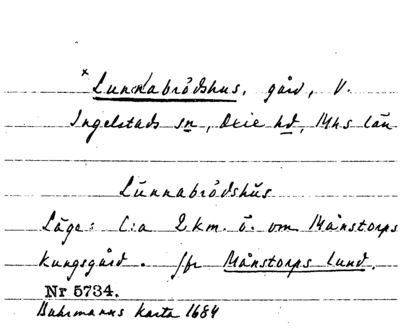 x Lunnabrödshus, gård, V.
Ingelstads sn, Oxie hd, Mhs län
Lünnabrödshüs
Läge: C:a 2 km. ö. om Månstorps
kungsgård. Jfr Månstorps Lund.
Nr 5734.
Buhrmanns karta 1684